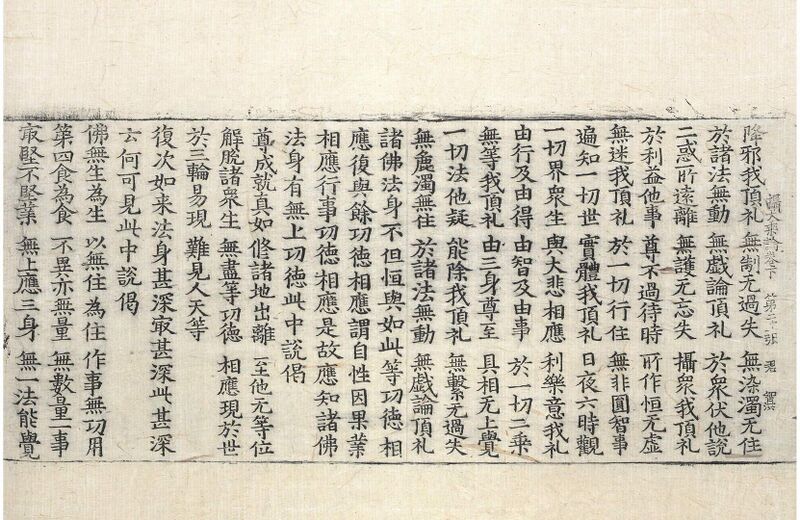 攝大乘論卷下 第二十張
降邪我頂礼 無制无過失 無染濁无住
於諸法無動 無戲論頂礼 於衆伏他說
二惑所遠離 無護无忘失 攝衆我頂礼
於利益他事 尊不過待時 所作恒无虛
無迷我頂礼 於一切行住 無非圓智事
遍知一切世 實體我頂礼 日夜六時觀
一切界衆生 與大悲相應 利樂意我礼
由行及由得 由智及由事 於一切二乗
無等我頂礼 由三身尊至 具相无上覺
一切法他疑 能除我頂礼 無繫无過失
無麁濁無住 於諸法無動 無戲論頂礼
諸佛法身不但恒與如此等功德相
應復與餘功德相應謂自性因果業
相應行事功德相應是故應知諸佛
法身有無上功德此中說偈
尊成就真如 修諸地出離 至他无等位
解脫諸衆生 無盡等功德 相應現於世
於三輪易現 難見人天等
復次如来法身甚深冣甚深此甚深
云何可見此中說偈
佛無生為生 以無住為住 作事無功用
第四食為食 不異亦無量 無數量一事
冣堅不堅業 無上應三身 無一法能覺